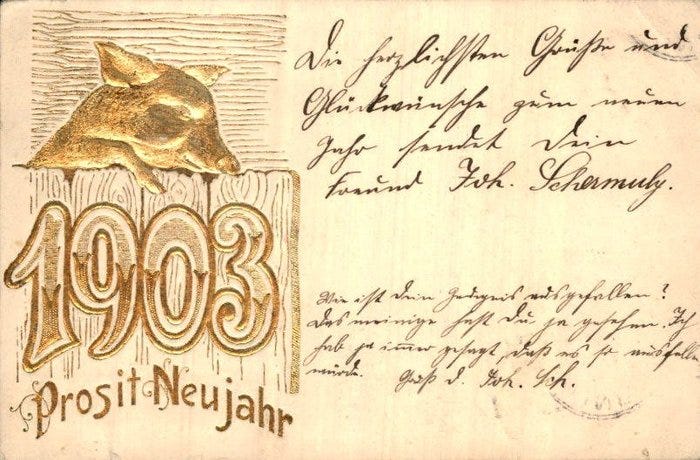 Die herzlichsten Grüße und
Glückwünsche zum neuen
Jahr sendet Dein
Freund Joh. Schermuly.
Wie ist dein Zeugnis ausgefallen?
Das meinige hast Du ja gesehen. Ich
hab ja immer gesagt, daß es so ausfallen
würde. Gruß d. Joh. Sch.
1903
Prosit Neujahr